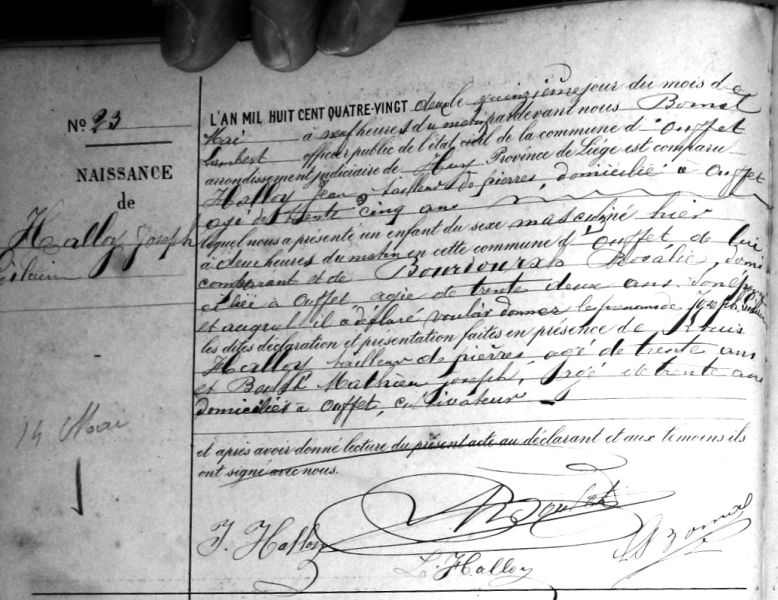 Nº 23
NAISSANCE
de
Halloy Joseph
Ghilain
14 Mai
L'AN MIL HUIT CENT QUATRE-VINGT deux le quinzième jour du mois de
Mai à neuf heures du matin pardevant nous Bomal
Lambert officier public de l'état civil de la commune d'Ouffet
arrondissement judiciaire de Huy Province de Liège est comparu
Halloy Jean tailleur de pierres, domicilié à Ouffet
agé de trente cinq ans
lequel nous a présenté un enfant du sexe masculin né hier
à deux heures du matin en cette commune d'Ouffet de lui
comparant et de Rosalie, domi
ciliée à Ouffet agée de trente deux ans son épouse
et auquel il a déclaré vouloir donner les prénoms de Joseph Ghilain
les dites déclaration et présentation faites en présence de Louis
Halloy tailleur de pierres, agé de trente ans
et Mathieu Joseph, agé de trente ans
domiciliés à Ouffet, cultivateur
et après avoir donné lecture du présent acte au déclarant et aux témoins ils
ont signé avec nous.
J. Halloy
L. Halloy
L Bomal